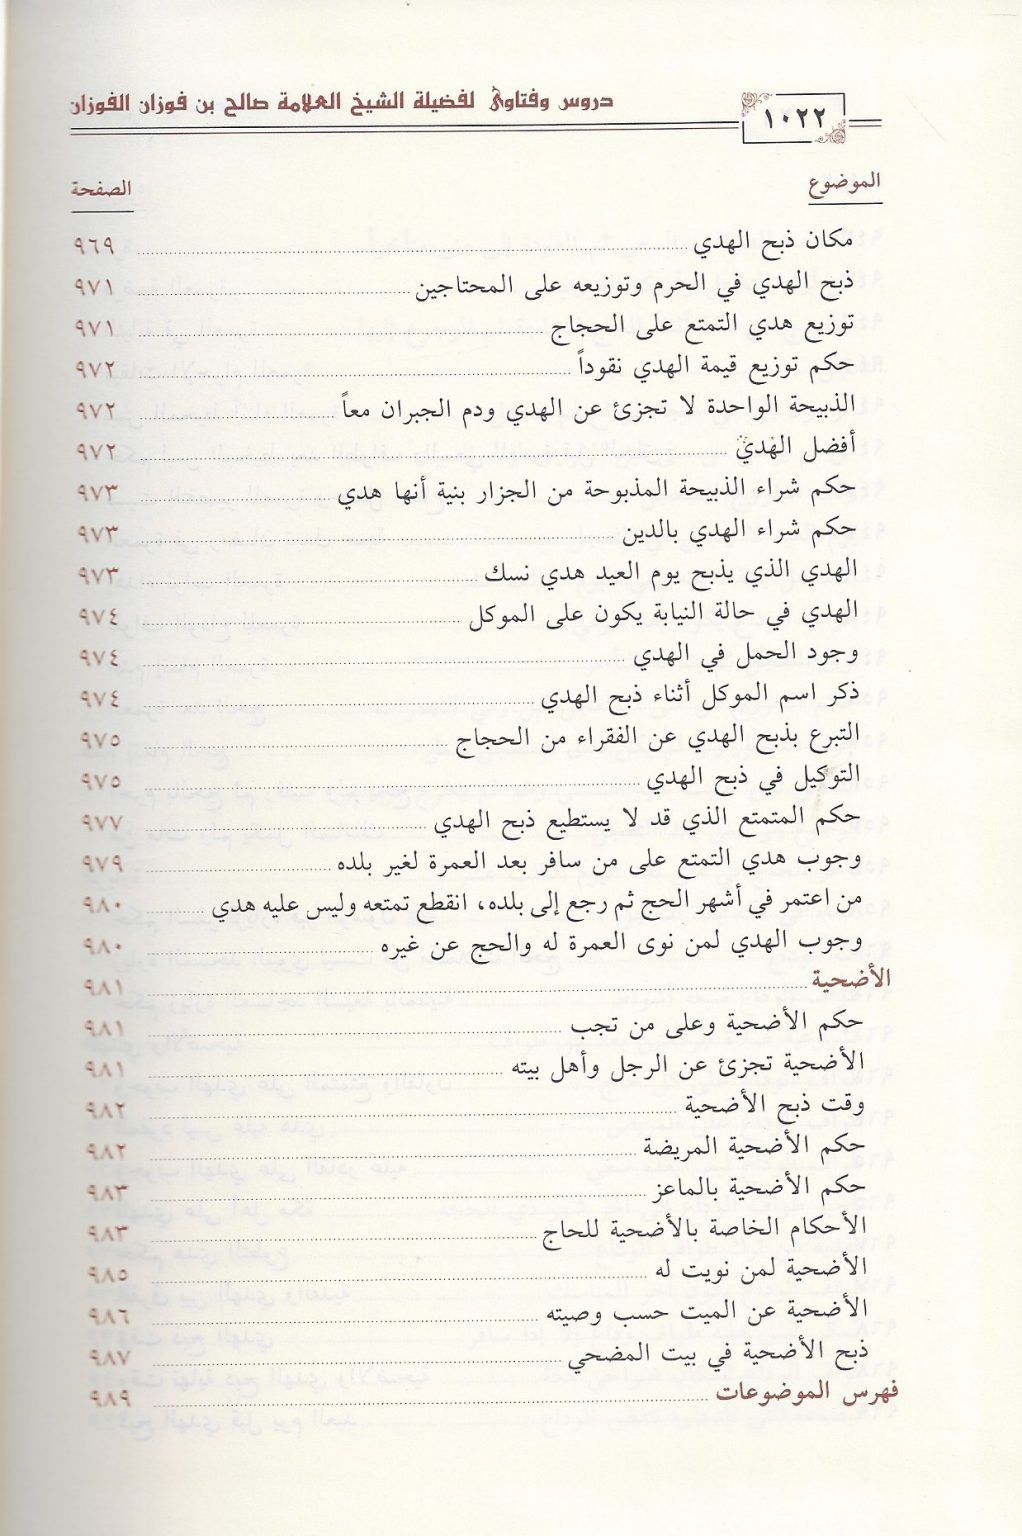 ١٠٢٢
دروس وفتاوى لفضيلة الشيخ العلامة صالح بن فوزان الفوزان
الموضوع الصفحة
مكان ذبح الهدي ٩٦٩
ذبح الهدي في الحرم وتوزيعه على المحتاجين ٩٧١
توزيع هدي التمتع على الحجاج ٩٧١
حكم توزيع قيمة الهدي نقوداً ٩٧٢
الذبيحة الواحدة لا تجزئ عن الهدي ودم الجبران معاً ٩٧٢
أفضل الهَدْيِ ٩٧٢
حكم شراء الذبيحة المذبوحة من الجزار بنية أنها هدي ٩٧٣
حكم شراء الهدي بالدين ٩٧٣
الهدي الذي يذبح يوم العيد هدي نسك ٩٧٣
الهدي في حالة النيابة يكون على الموكل ٩٧٤
وجود الحمل في الهدي ٩٧٤
ذكر اسم الموكل أثناء ذبح الهدي ٩٧٤
التبرع بذبح الهدي عن الفقراء من الحجاج ٩٧٥
التوكيل في ذبح الهدي ٩٧٥
حكم المتمتع الذي قد لا يستطيع ذبح الهدي ٩٧٧
وجوب هدي التمتع على من سافر بعد العمرة لغير بلده ٩٧٩
من اعتمر في أشهر الحج ثم رجع إلى بلده، انقطع تمتعه وليس عليه هدي ٩٨٠
وجوب الهدي لمن نوى العمرة له والحج عن غيره ٩٨٠
الأضحية ٩٨١
حكم الأضحية وعلى من تجب ٩٨١
الأضحية تجزئ عن الرجل وأهل بيته ٩٨١
وقت ذبح الأضحية ٩٨٢
حكم الأضحية المريضة ٩٨٢
حكم الأضحية بالماعز ٩٨٣
الأحكام الخاصة بالأضحية للحاج ٩٨٣
الأضحية لمن نويت له ٩٨٥
الأضحية عن الميت حسب وصيته ٩٨٦
ذبح الأضحية في بيت المضحي ٩٨٧
فهرس الموضوعات ٩٨٩